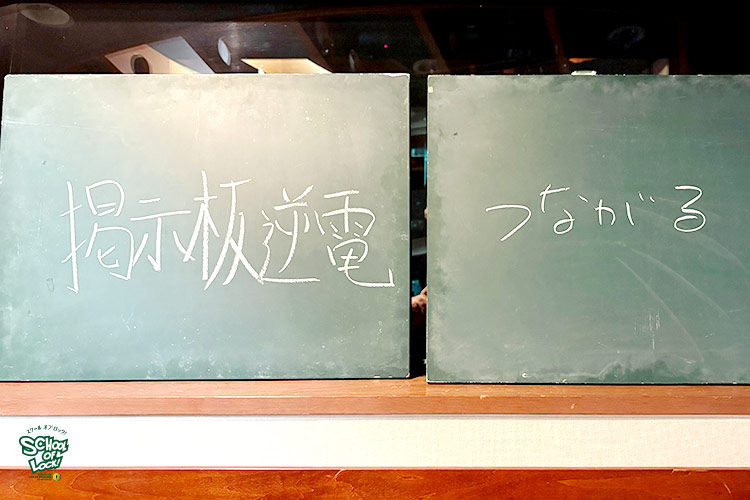 掲示板逆電
つながる
スクール オブ ロック!
SCHOOL
OF
LOCK!